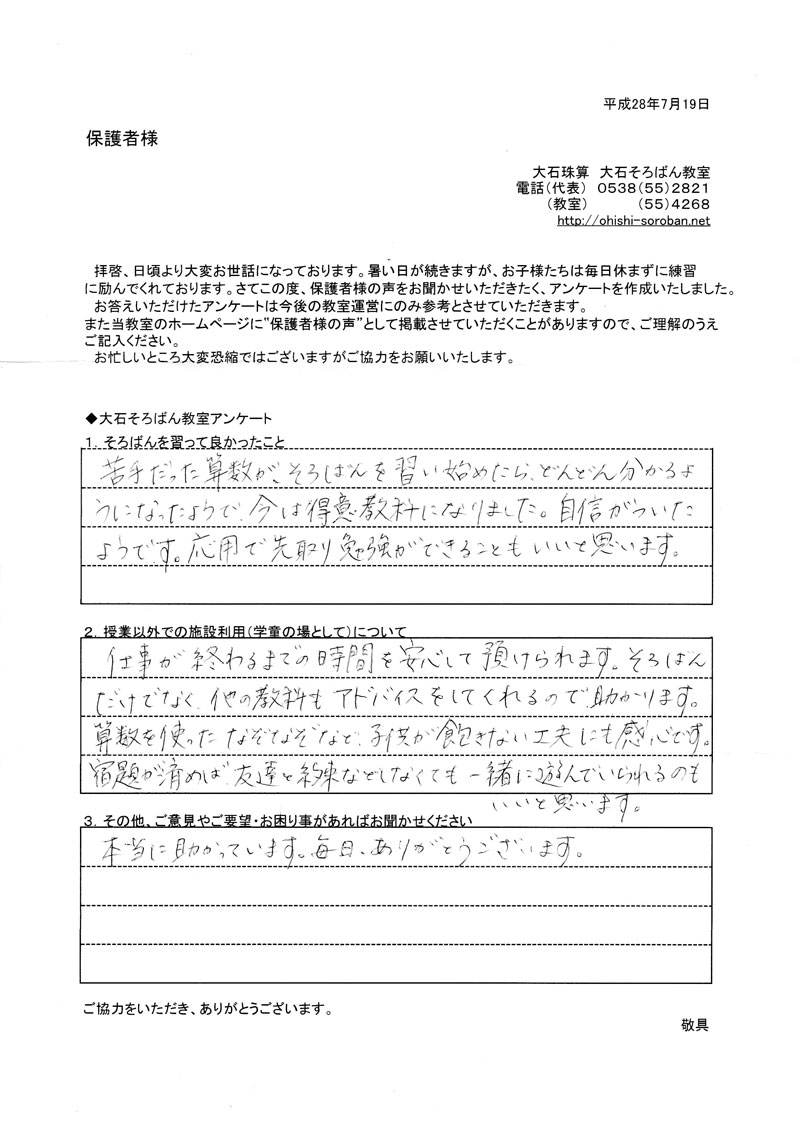 平成28年7月19日
保護者様
大石珠算　大石そろばん教室
電話(代表)　0538(55)2821
(教室)　　　(55)4268
http://ohishi-soroban.net
拝啓、日頃より大変お世話になっております。暑い日が続きますが、お子様たちは毎日休まずに練習
に励んでくれております。さてこの度、保護者様の声をお聞かせいただきたく、アンケートを作成いたしました。
お答えいただけたアンケートは今後の教室運営にのみ参考とさせていただきます。
また当教室のホームページに"保護者様の声"として掲載させていただくことがありますので、ご理解のうえ
ご記入ください。
お忙しいところ大変恐縮ではございますがご協力をお願いいたします。
◆大石そろばん教室アンケート
1. そろばんを習って良かったこと
苦手だった算数が、そろばんを習い始めたら、どんどん分かるよ
うになったようで、今は得意教科になりました。自信がついた
ようです。応用で先取り勉強ができることもいいと思います。
2. 授業以外での施設利用(学童の場として)について
仕事が終わるまでの時間を安心して預けられます。そろばん
だけでなく、他の教科もアドバイスをしてくれるので助かります。
算数を使ったなぞなぞなど、子供が飽きない工夫にも感心です。
宿題が済めば、友達と約束などしなくても一緒に遊んでいられるのも
いいと思います。
3. その他、ご意見やご要望・お困り事があればお聞かせください
本当に助かっています。毎日、ありがとうございます。
ご協力をいただき、ありがとうございます。
敬具